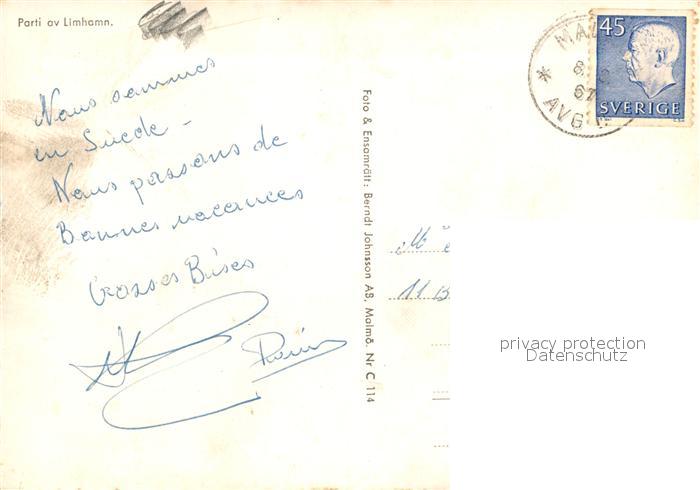 Parti av Limhamn.
Nous sommes
en Suède -
Nous passons de
Bonnes vacances
Grosses Bises
MAL
67
AVG
45
SVERIGE
Foto & Ensamrätt: Berndt Johnsson AB, Malmö. Nr C 114
11
privacy protection
Datenschutz